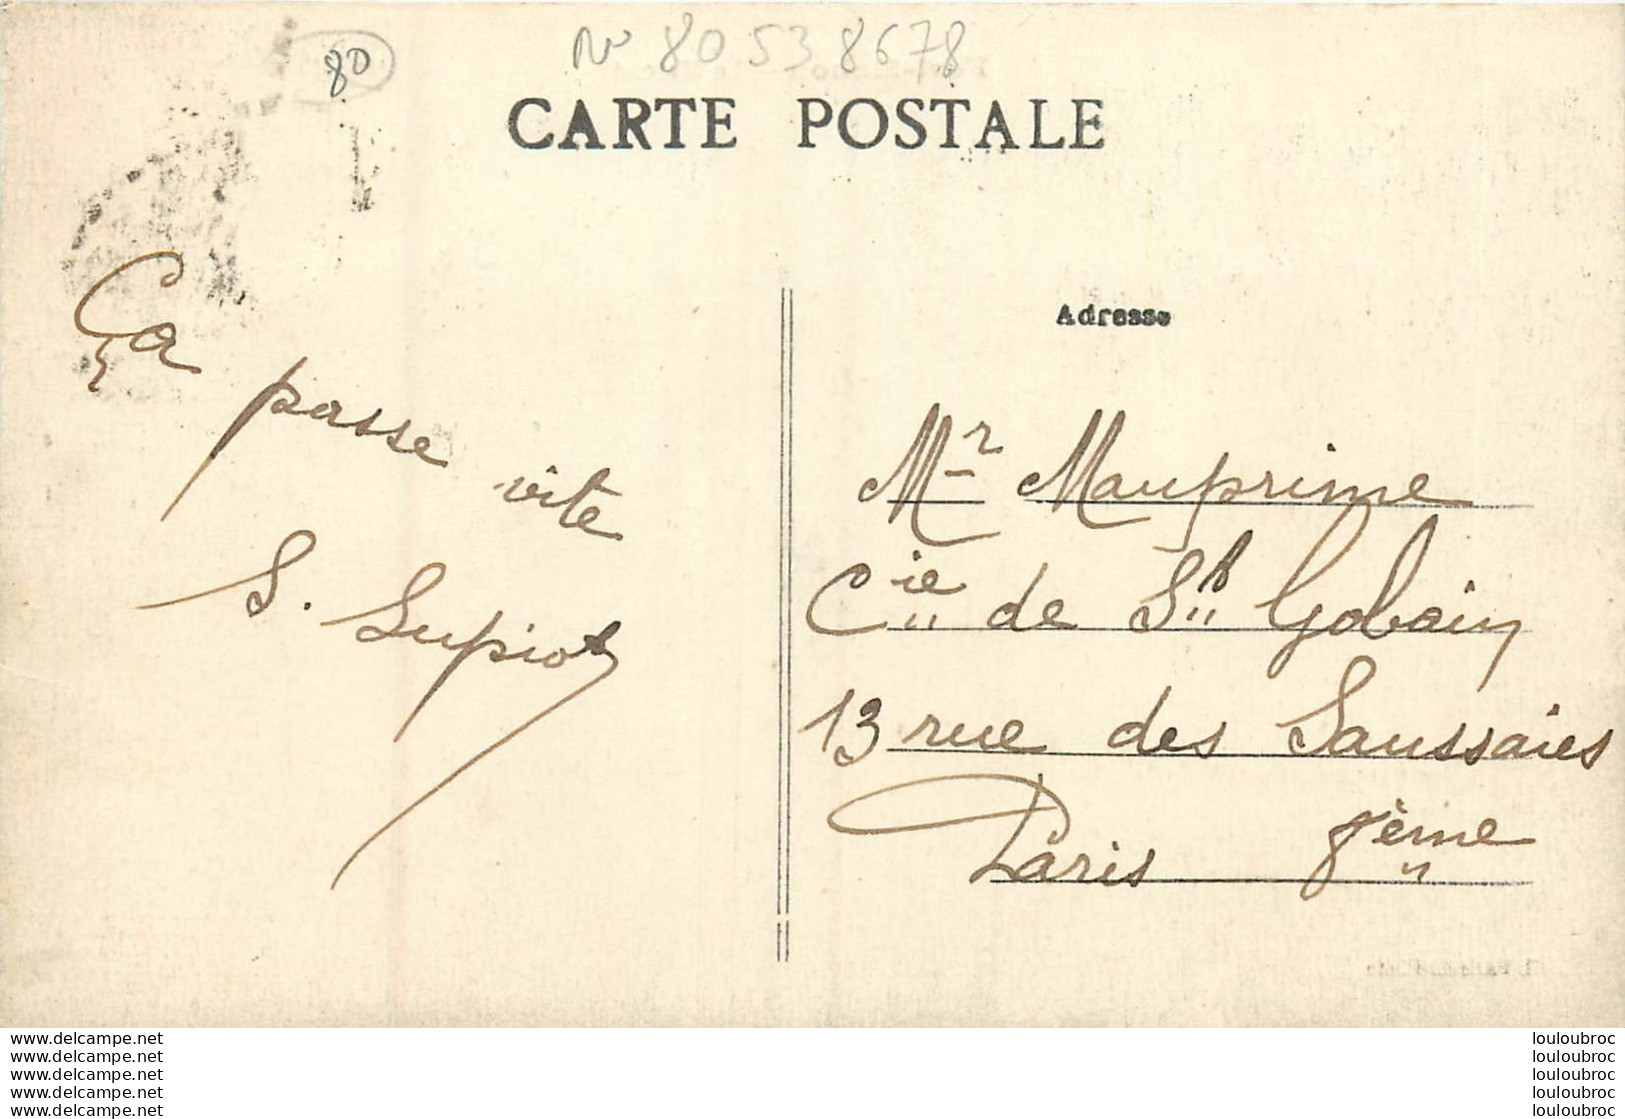 80
No 80 53 8678
CARTE POSTALE
Adresse
Ça
passe
vite
S. Supiot
Mr Mauprime
Cie de St Gobain
13 rue des Saussaies
Paris 8ème
www.delcampe.net louloubroc
www.delcampe.net louloubroc
www.delcampe.net louloubroc
www.delcampe.net louloubroc
www.delcampe.net louloubroc